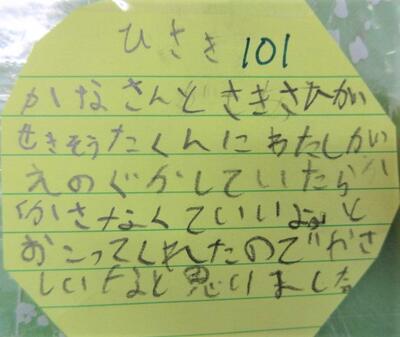 ひさき 101
かなさんとさきさひかい
せきそうたくんにわたしがい
えのぐかしていたら
かさなくていいよと
おこってくれたのでやさ
しいなと思いました